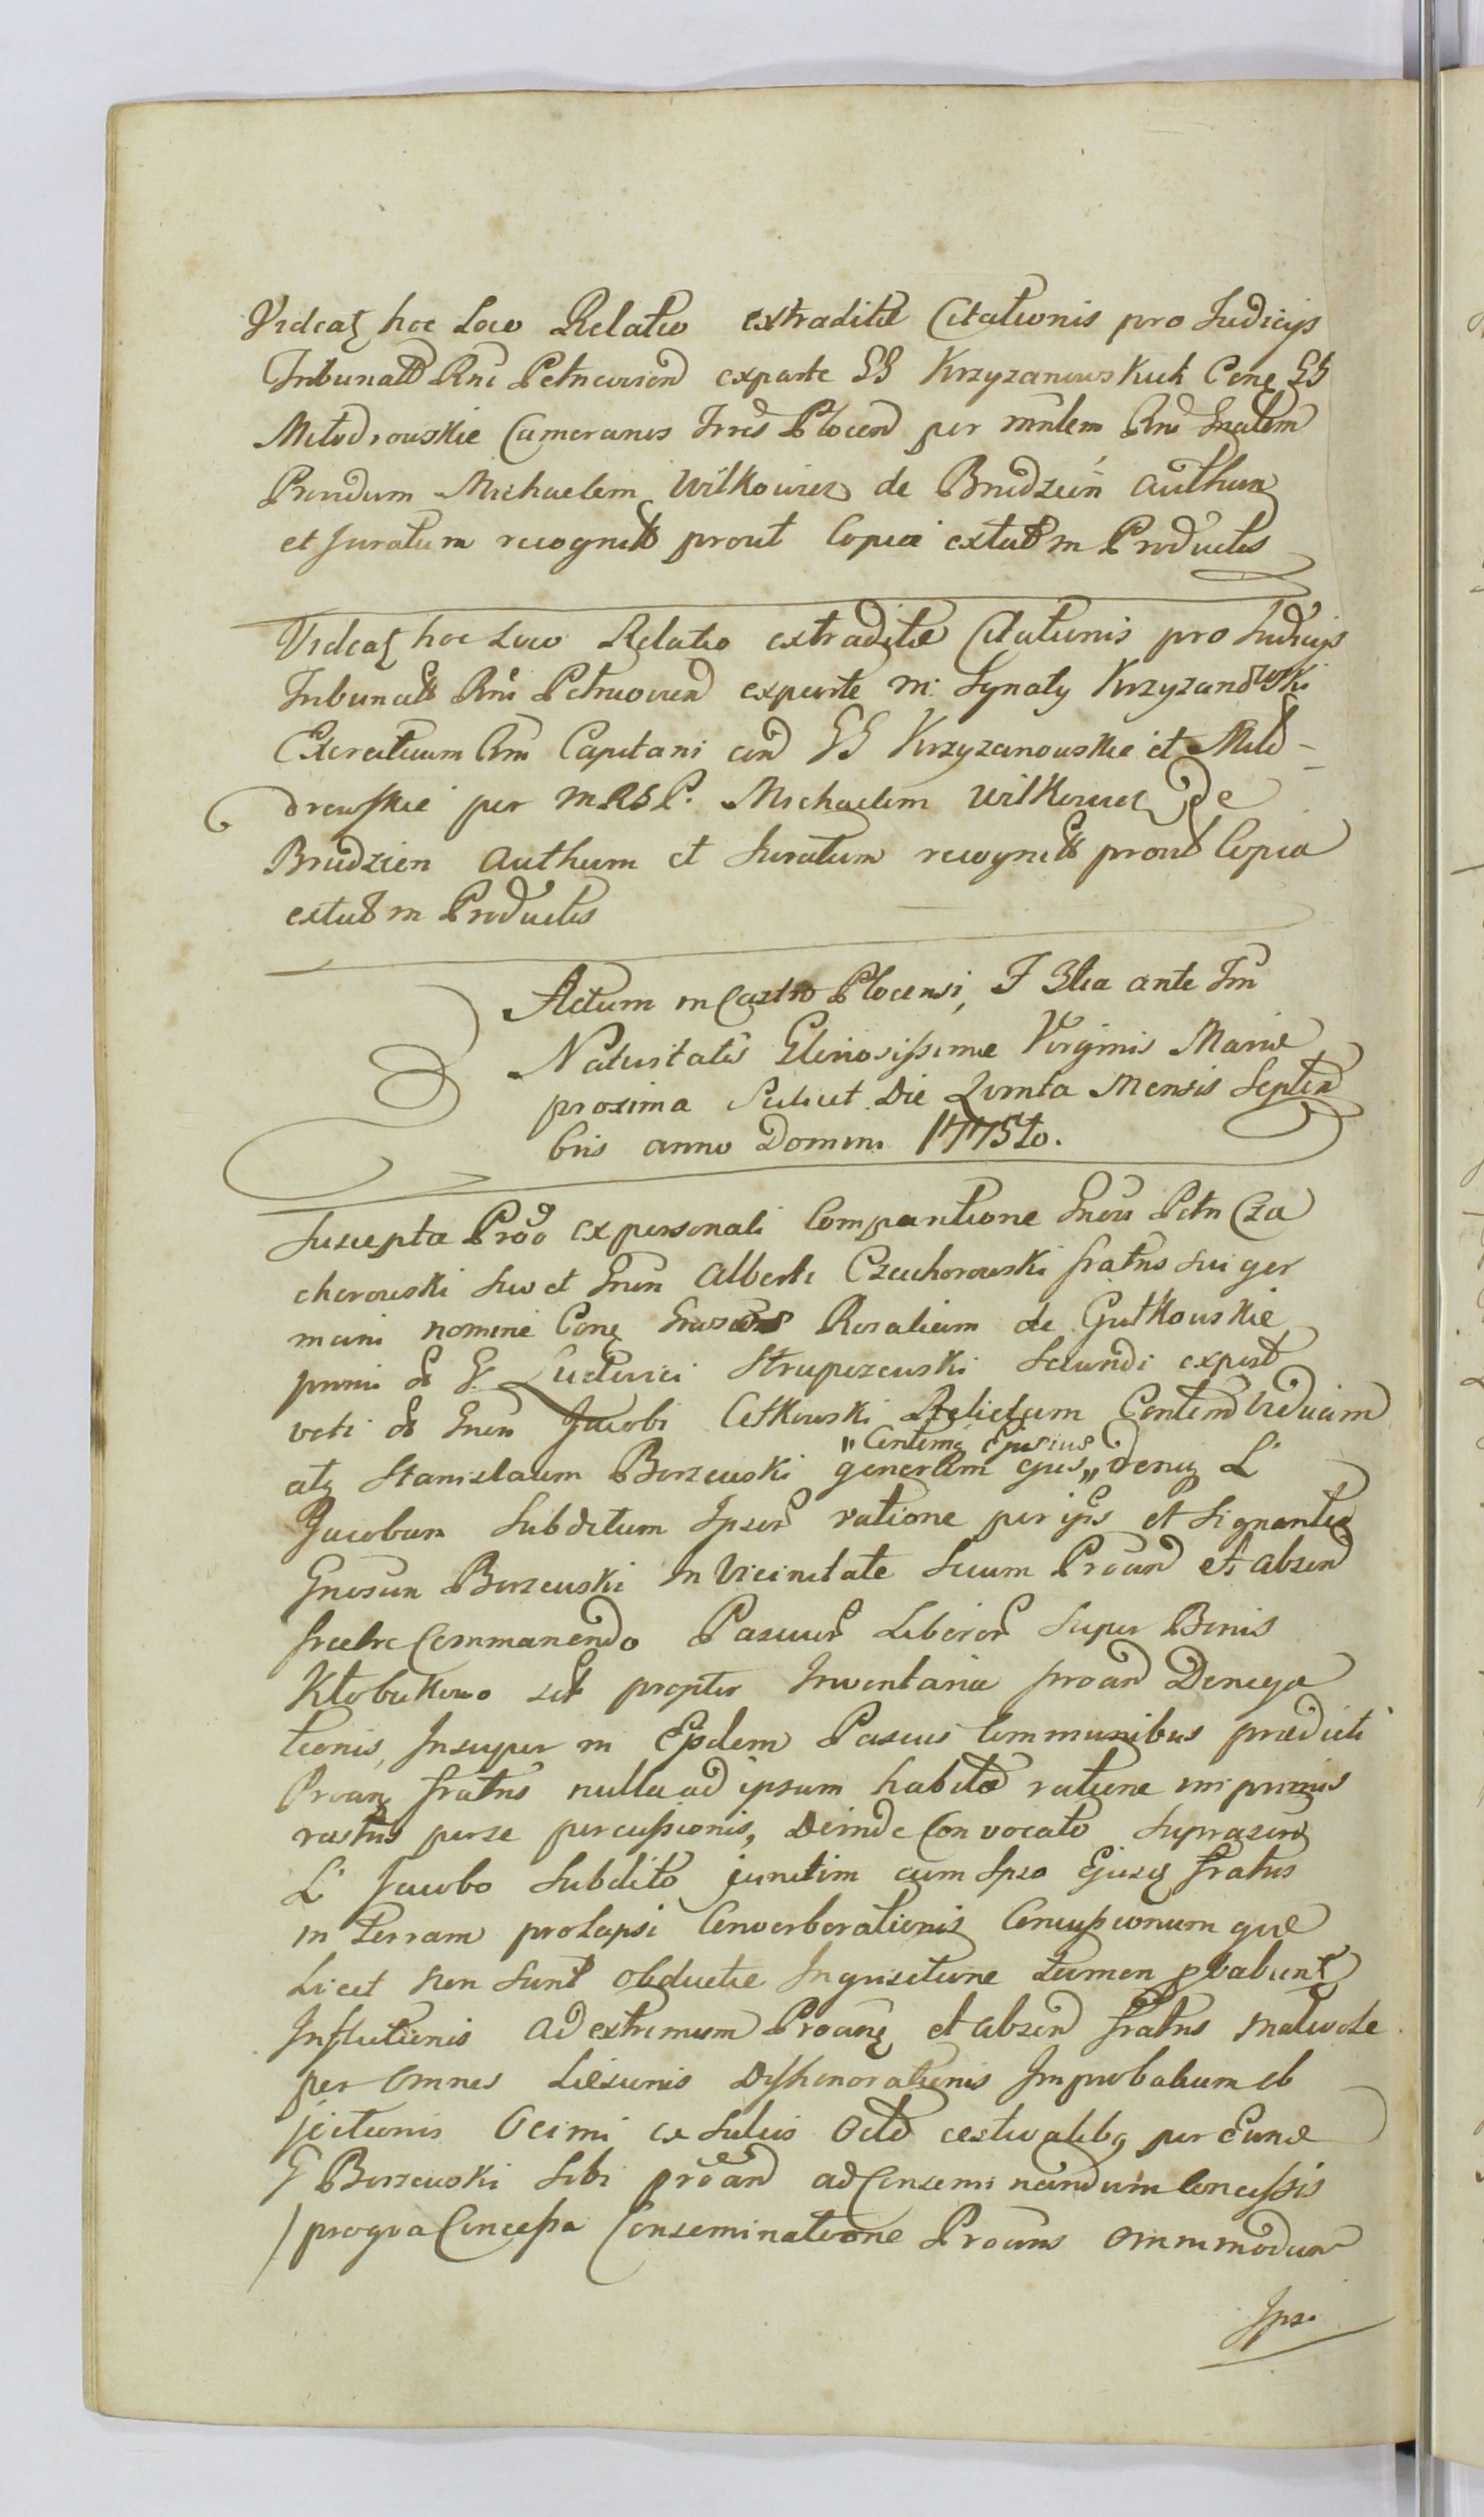 Videatz hoc Loco Relatio extraditæ Citationis pro Judicijs
Tribunalb Rni Petricovien exparte GG Krzyzanowskich Conz GG
Młodrowskie Camerarios Trris Plocen per mnlem Rni Gnalem
Providum Michaelem Wilkowicz de Brudzein authum
et juratum recognitt prout Copia extatt in Productis
Videatz hoc Loco Relatio extraditæ Citationis pro Judicijs
Tribunalt Rni Petricovien exparte M: Ignaty Krzyzanowski
Exercituum Rni Capitani con GG Krzyzanowskie et Mło-
drowskie per MRGP. Michaelem Wilkowicz De
Brudzien authum et Juratum recognitt prout Copia
extatt in Productis
Actum in Castro Plocensi, F 3tia ante Fm
Nativitatis Gloriosissimæ Virginis Mariæ
proxima Scilicet Die Quinta Mensis Septem
bris anno Domini 1775to.
Suscepta Proo ex personali Comparitione Gnosi Petri Cza
chorowski suo et Gnosi Alberti Czachorowski fratris sui ger
mani nomine Conz Rosaliam de Gutkowskie
primi et G. Ludovici Strupczewski Secundi exposit
voti et Gnosi Jacobi Cetkowski Relictam Contem viduam
atz Stanislaum Borzewski generum ejus „ deniz L
„Contemz Ejusius
Jacobum Subditum Ipsor ratione per ijs et Signanter
Gnosum Borzewski In Vicinitate Secum Proan et absen
fratre Commanendo Pascuor Liberor Super Bonis
Kłobukowo sct propter Inventaria proan Denega
tionis, Insuper in Ejsdem Pascuis Communibus prædicti
Proanz fratris nulla ad ipsum habita ratione imprimis
rastris per se percussionis, Deinde Convocato Suprascriptz
L Jacobo Subdito junctim cum Ipso Ejusz fratris
in Terram prolapsi Converberationis Concussionum quæ
Licet non sunt obductæ Inquisitione tamen pbabunt
Inflictionis ad extremum Proanz et absen fratris
per omnes Læsionis Dishonorationis Improbationum ob
jectionis Ocimi ex Sulcis Octo æstivalibz per Eund
G Borzewski Sibi proan ad Conseminandum Concessis
/ pro qua Concessa Conseminatione Proans Ommmodum
Ips.